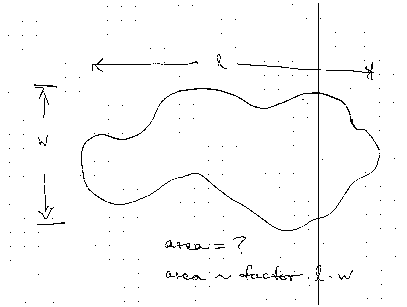 l
w
area = ?
area ~ factor · l · w